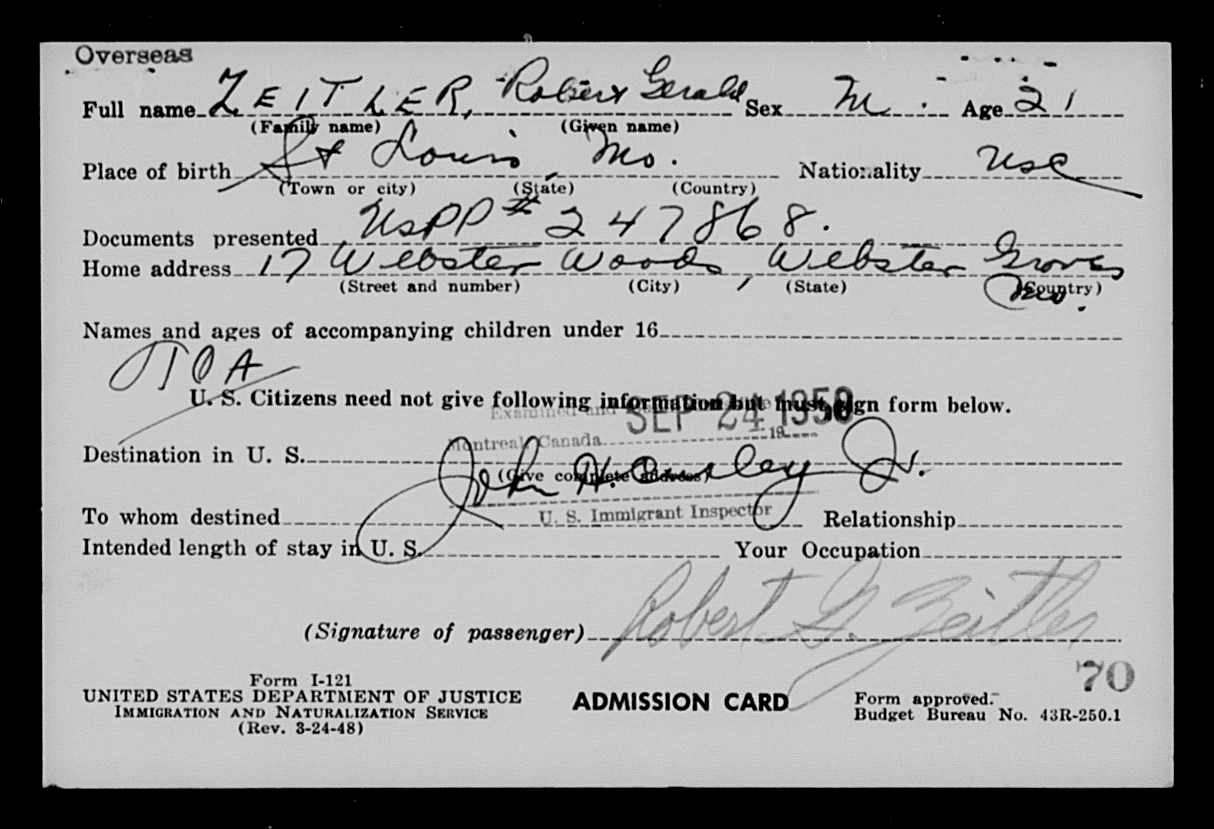 Overseas
Full name ZEITLER, Robert Gerald Sex M. Age 21
(Family name) (Given name)
Place of birth St Louis, Mo. Nationality USC
(Town or city) (State) (Country)
Documents presented USPP # 247868.
Home address 17 Webster Woods, Webster Groves
(Street and number) (City) (State) (Country)
Mo.
Names and ages of accompanying children under 16
TOA
U. S. Citizens need not give following information but must sign form below.
Examined and
SEP 24 1950
Montreal Canada 19
Destination in U. S.
(Give complete address)
John H. Jr.
To whom destined Relationship
U. S. Immigrant Inspector
Intended length of stay in U. S. Your Occupation
(Signature of passenger) Robert G. Zeitler
70
Form I-121
UNITED STATES DEPARTMENT OF JUSTICE
IMMIGRATION AND NATURALIZATION SERVICE
(Rev. 3-24-48)
ADMISSION CARD
Form approved.
Budget Bureau No. 43R-250.1